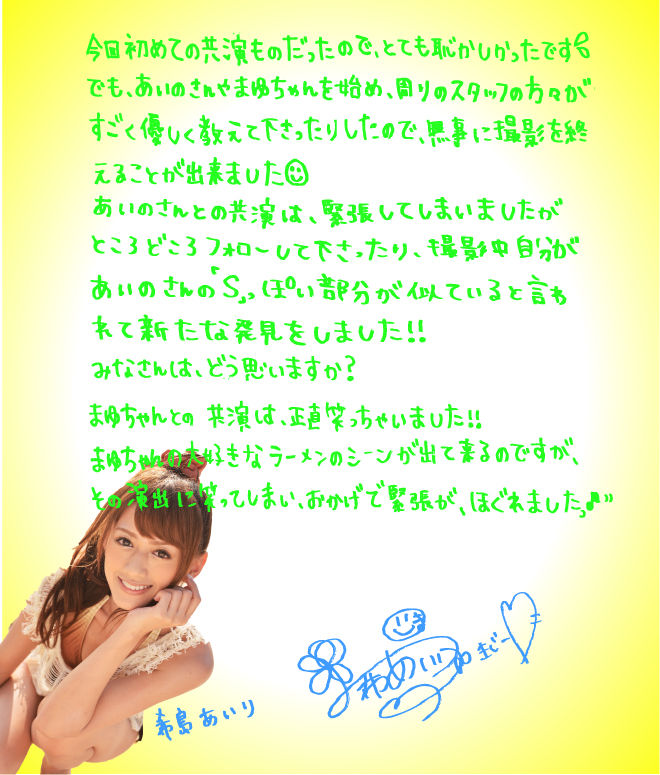 今回初めての共演ものだったので、とても恥かしかったです
でも、あいのさんやまゆちゃんを始め、周りのスタッフの方々が
すごく優しく教えて下さったりしたので、無事に撮影を終
えることが出来ました
あいのさんとの共演は、緊張してしまいましたが
ところどころフォローして下さったり、撮影中自分が
あいのさんの「S」っぽい部分が似ていると言わ
れて新たな発見をしました!!
みなさんは、どう思いますか?
まゆちゃんとの共演は、正直笑っちゃいました!!
まゆちゃんの大好きなラーメンのシーンが出て来るのですが、
その演出に笑ってしまい、おかげで緊張が、ほぐれましたっ♪"
希島あいり